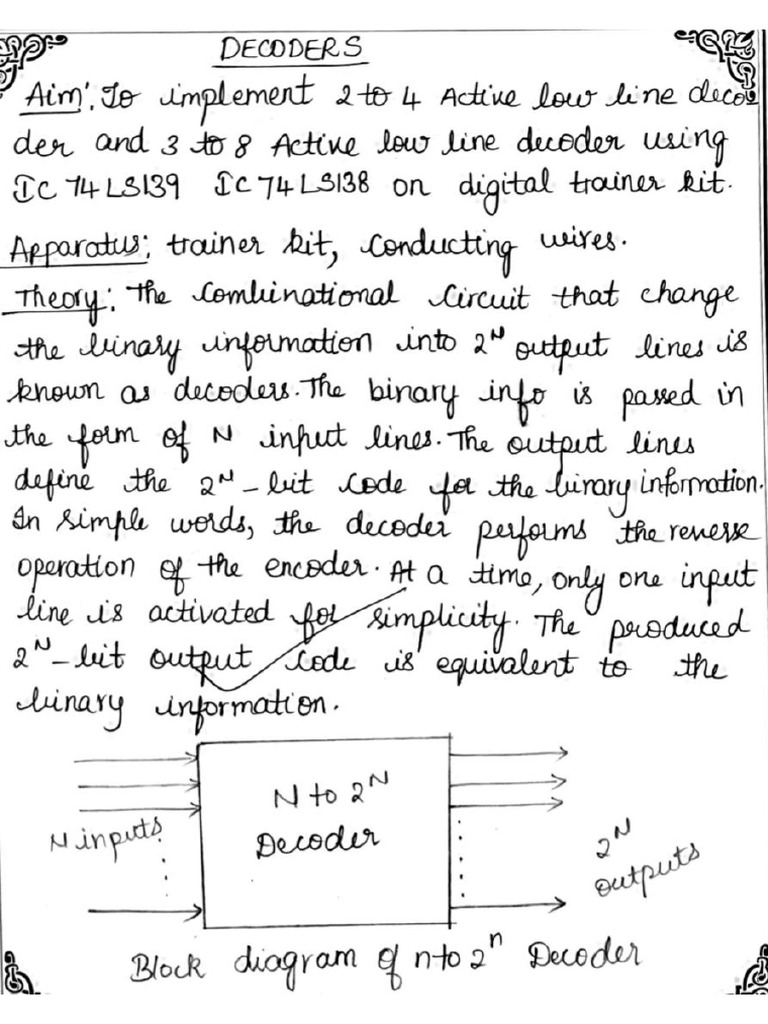 DECODERS
Aim: To implement 2 to 4 Active low line deco
der and 3 to 8 Active low line decoder using
IC 74LS139 IC 74LS138 on digital trainer kit.
Apparatus: trainer kit, conducting wires.
Theory: The combinational circuit that change
the binary information into 2^N output lines is
known as decoders. The binary info is passed in
the form of N input lines. The output lines
define the 2^N-bit code for the binary information.
In simple words, the decoder performs the reverse
operation of the encoder. At a time, only one input
line is activated for simplicity. The produced
2^N-bit output code is equivalent to the
binary information.
N to 2^N
Decoder
N inputs
2^N
outputs
Block diagram of n to 2^n Decoder